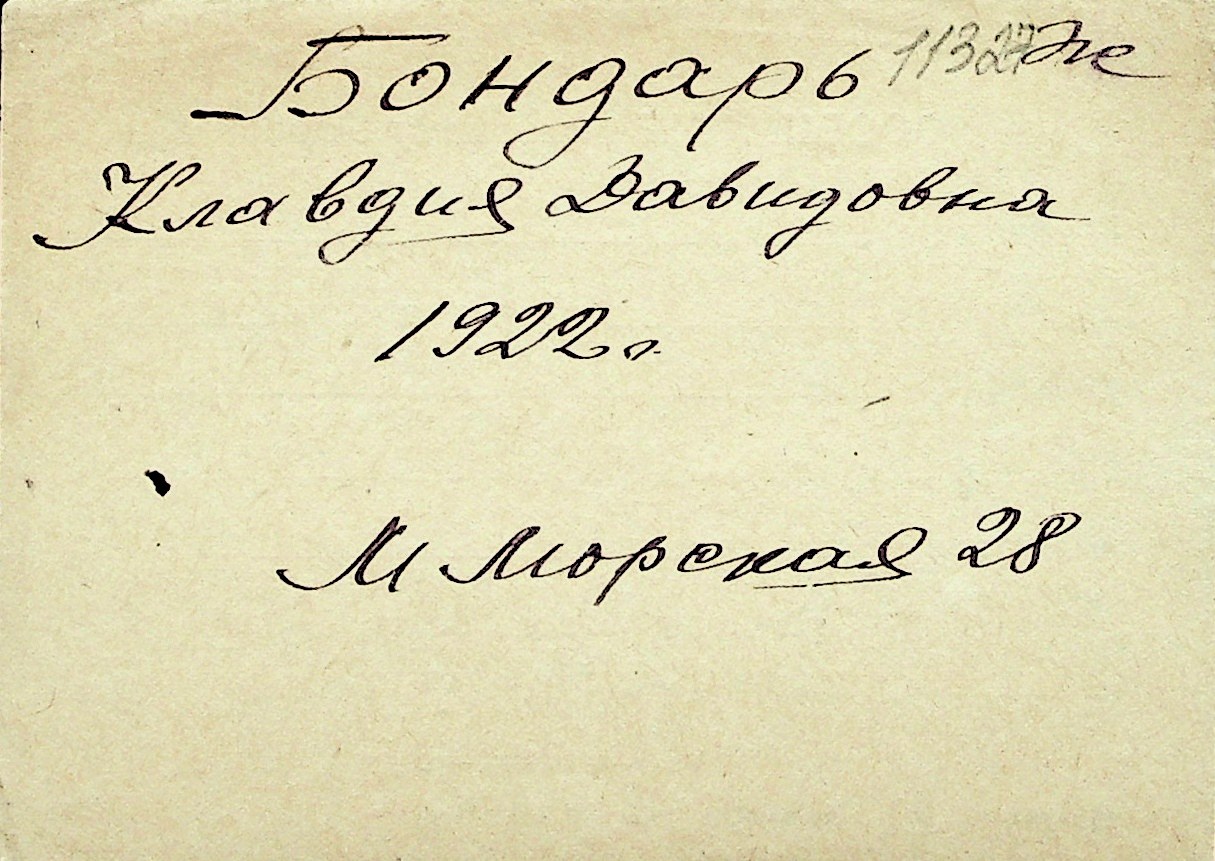 Бондарь 11327 Ж
Клавдия Давидовна
1922 г.
М Морская 28